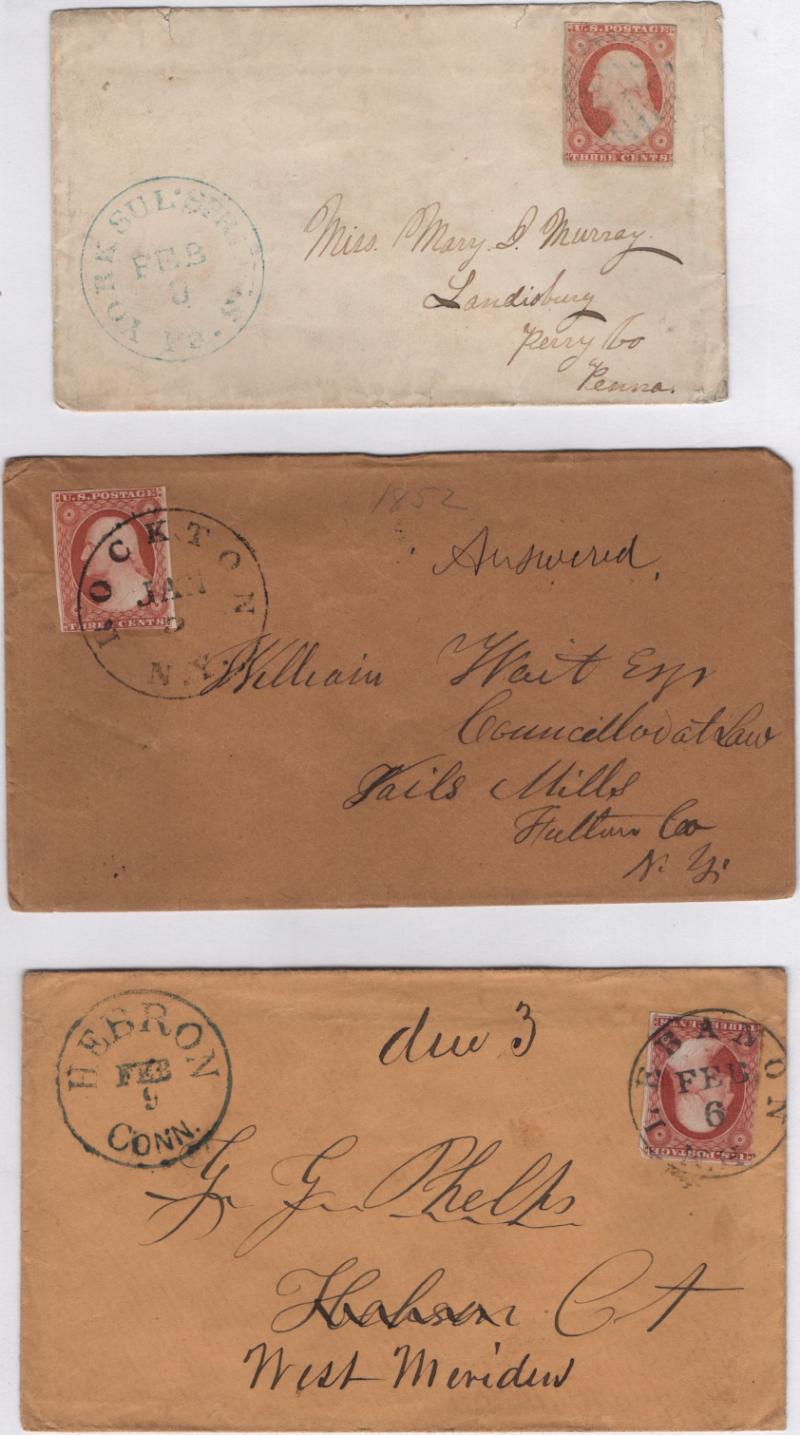 U.S. POSTAGE
THREE CENTS
YORK SUL: SPRINGS.
FEB
Pa.
Miss. Mary. I. Murray.
Landisburg
Perry Co
Penna.
U.S. POSTAGE
THREE CENTS
LOCKTON
JAN
N.Y.
1852
Answered
William Wait Esqr
Councillor at Law
Vails Mills
Fulton Co
N. Y.
HEBRON
FEB
9
CONN.
due 3
LEBANON
FEB
6
THREE CENTS
U.S. POSTAGE
G. G. Phelps
Ct
West Meriden